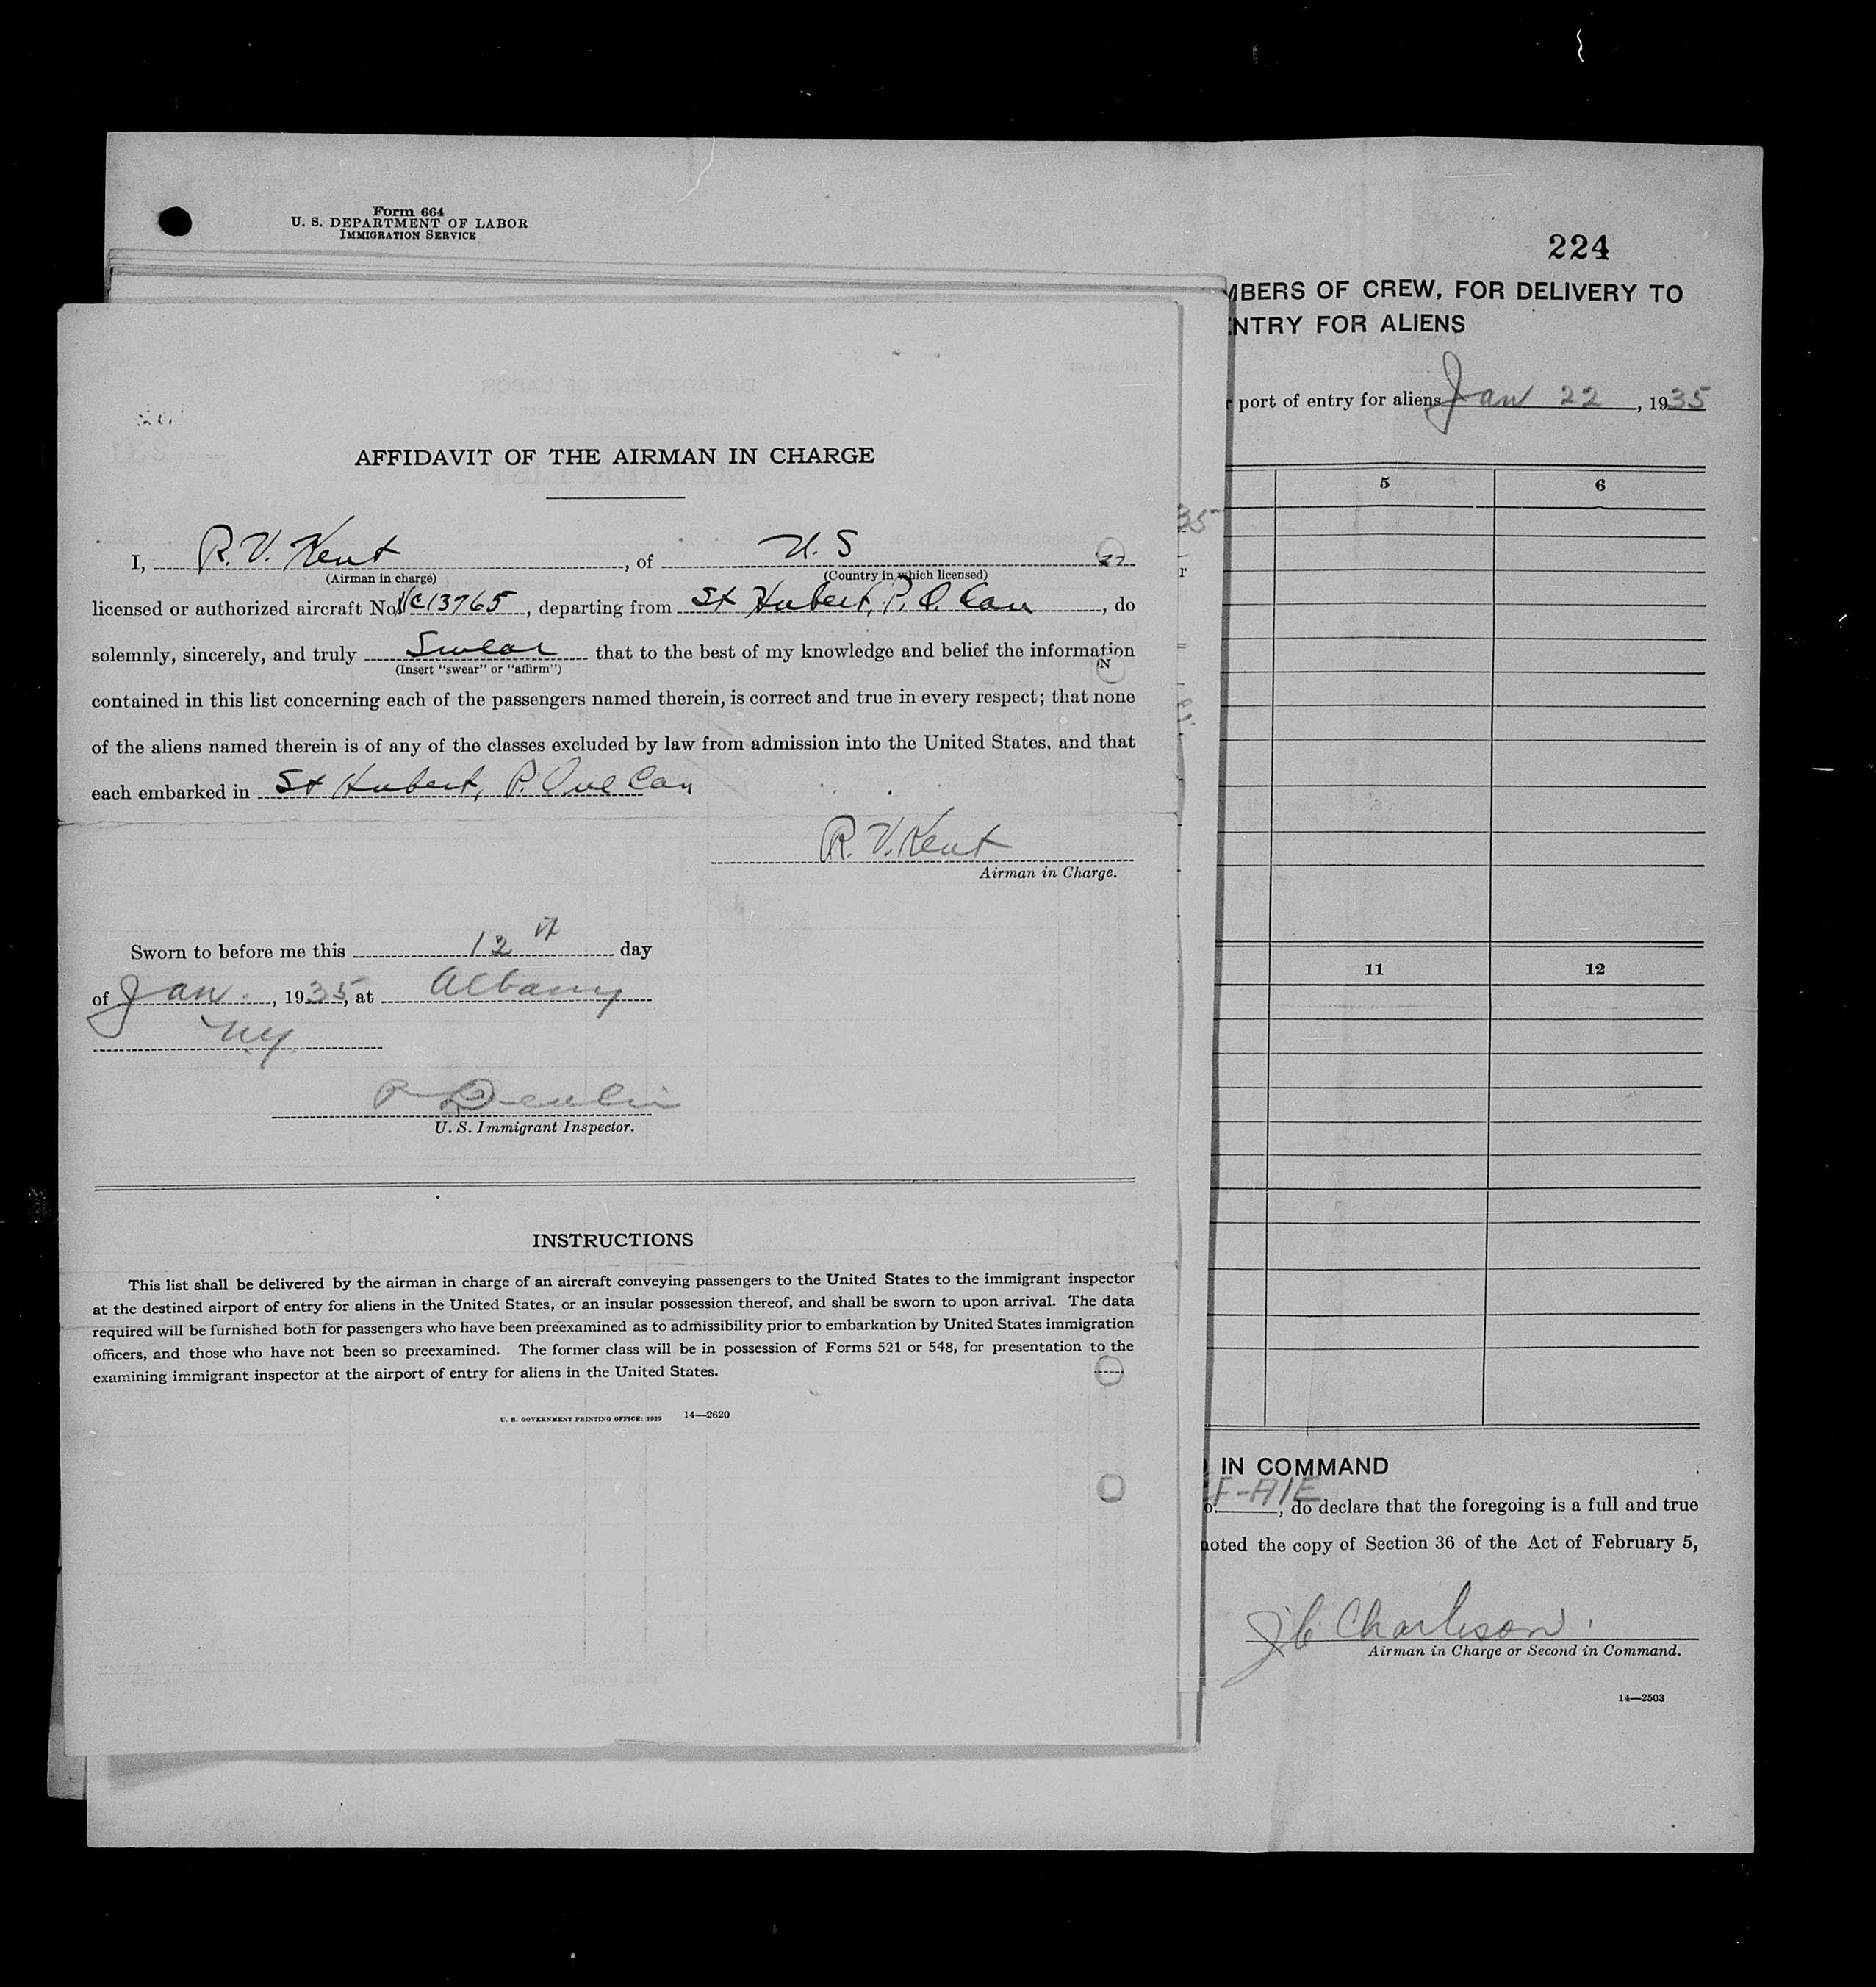 Form 664
U. S. DEPARTMENT OF LABOR
IMMIGRATION SERVICE
224
MBERS OF CREW, FOR DELIVERY TO
ENTRY FOR ALIENS
port of entry for aliens Jan 22, 1935
5 6
35
AFFIDAVIT OF THE AIRMAN IN CHARGE
I, R. V. Kent, of U. S
(Airman in charge) (Country in which licensed)
licensed or authorized aircraft No. NC13765, departing from St Hubert, P. Q. Can, do
solemnly, sincerely, and truly Swear that to the best of my knowledge and belief the information
(Insert "swear" or "affirm")
contained in this list concerning each of the passengers named therein, is correct and true in every respect; that none
of the aliens named therein is of any of the classes excluded by law from admission into the United States, and that
each embarked in St Hubert, P. Que Can
R. V. Kent
Airman in Charge.
Sworn to before me this 12th day
of Jan., 1935, at Albany
NY
P Devlin
U. S. Immigrant Inspector.
INSTRUCTIONS
This list shall be delivered by the airman in charge of an aircraft conveying passengers to the United States to the immigrant inspector
at the destined airport of entry for aliens in the United States, or an insular possession thereof, and shall be sworn to upon arrival. The data
required will be furnished both for passengers who have been preexamined as to admissibility prior to embarkation by United States immigration
officers, and those who have not been so preexamined. The former class will be in possession of Forms 521 or 548, for presentation to the
examining immigrant inspector at the airport of entry for aliens in the United States.
U. S. GOVERNMENT PRINTING OFFICE: 1929 14—2620
11 12
IN COMMAND
F-AIE, do declare that the foregoing is a full and true
noted the copy of Section 36 of the Act of February 5,
J C Charleson.
Airman in Charge or Second in Command.
14—2503